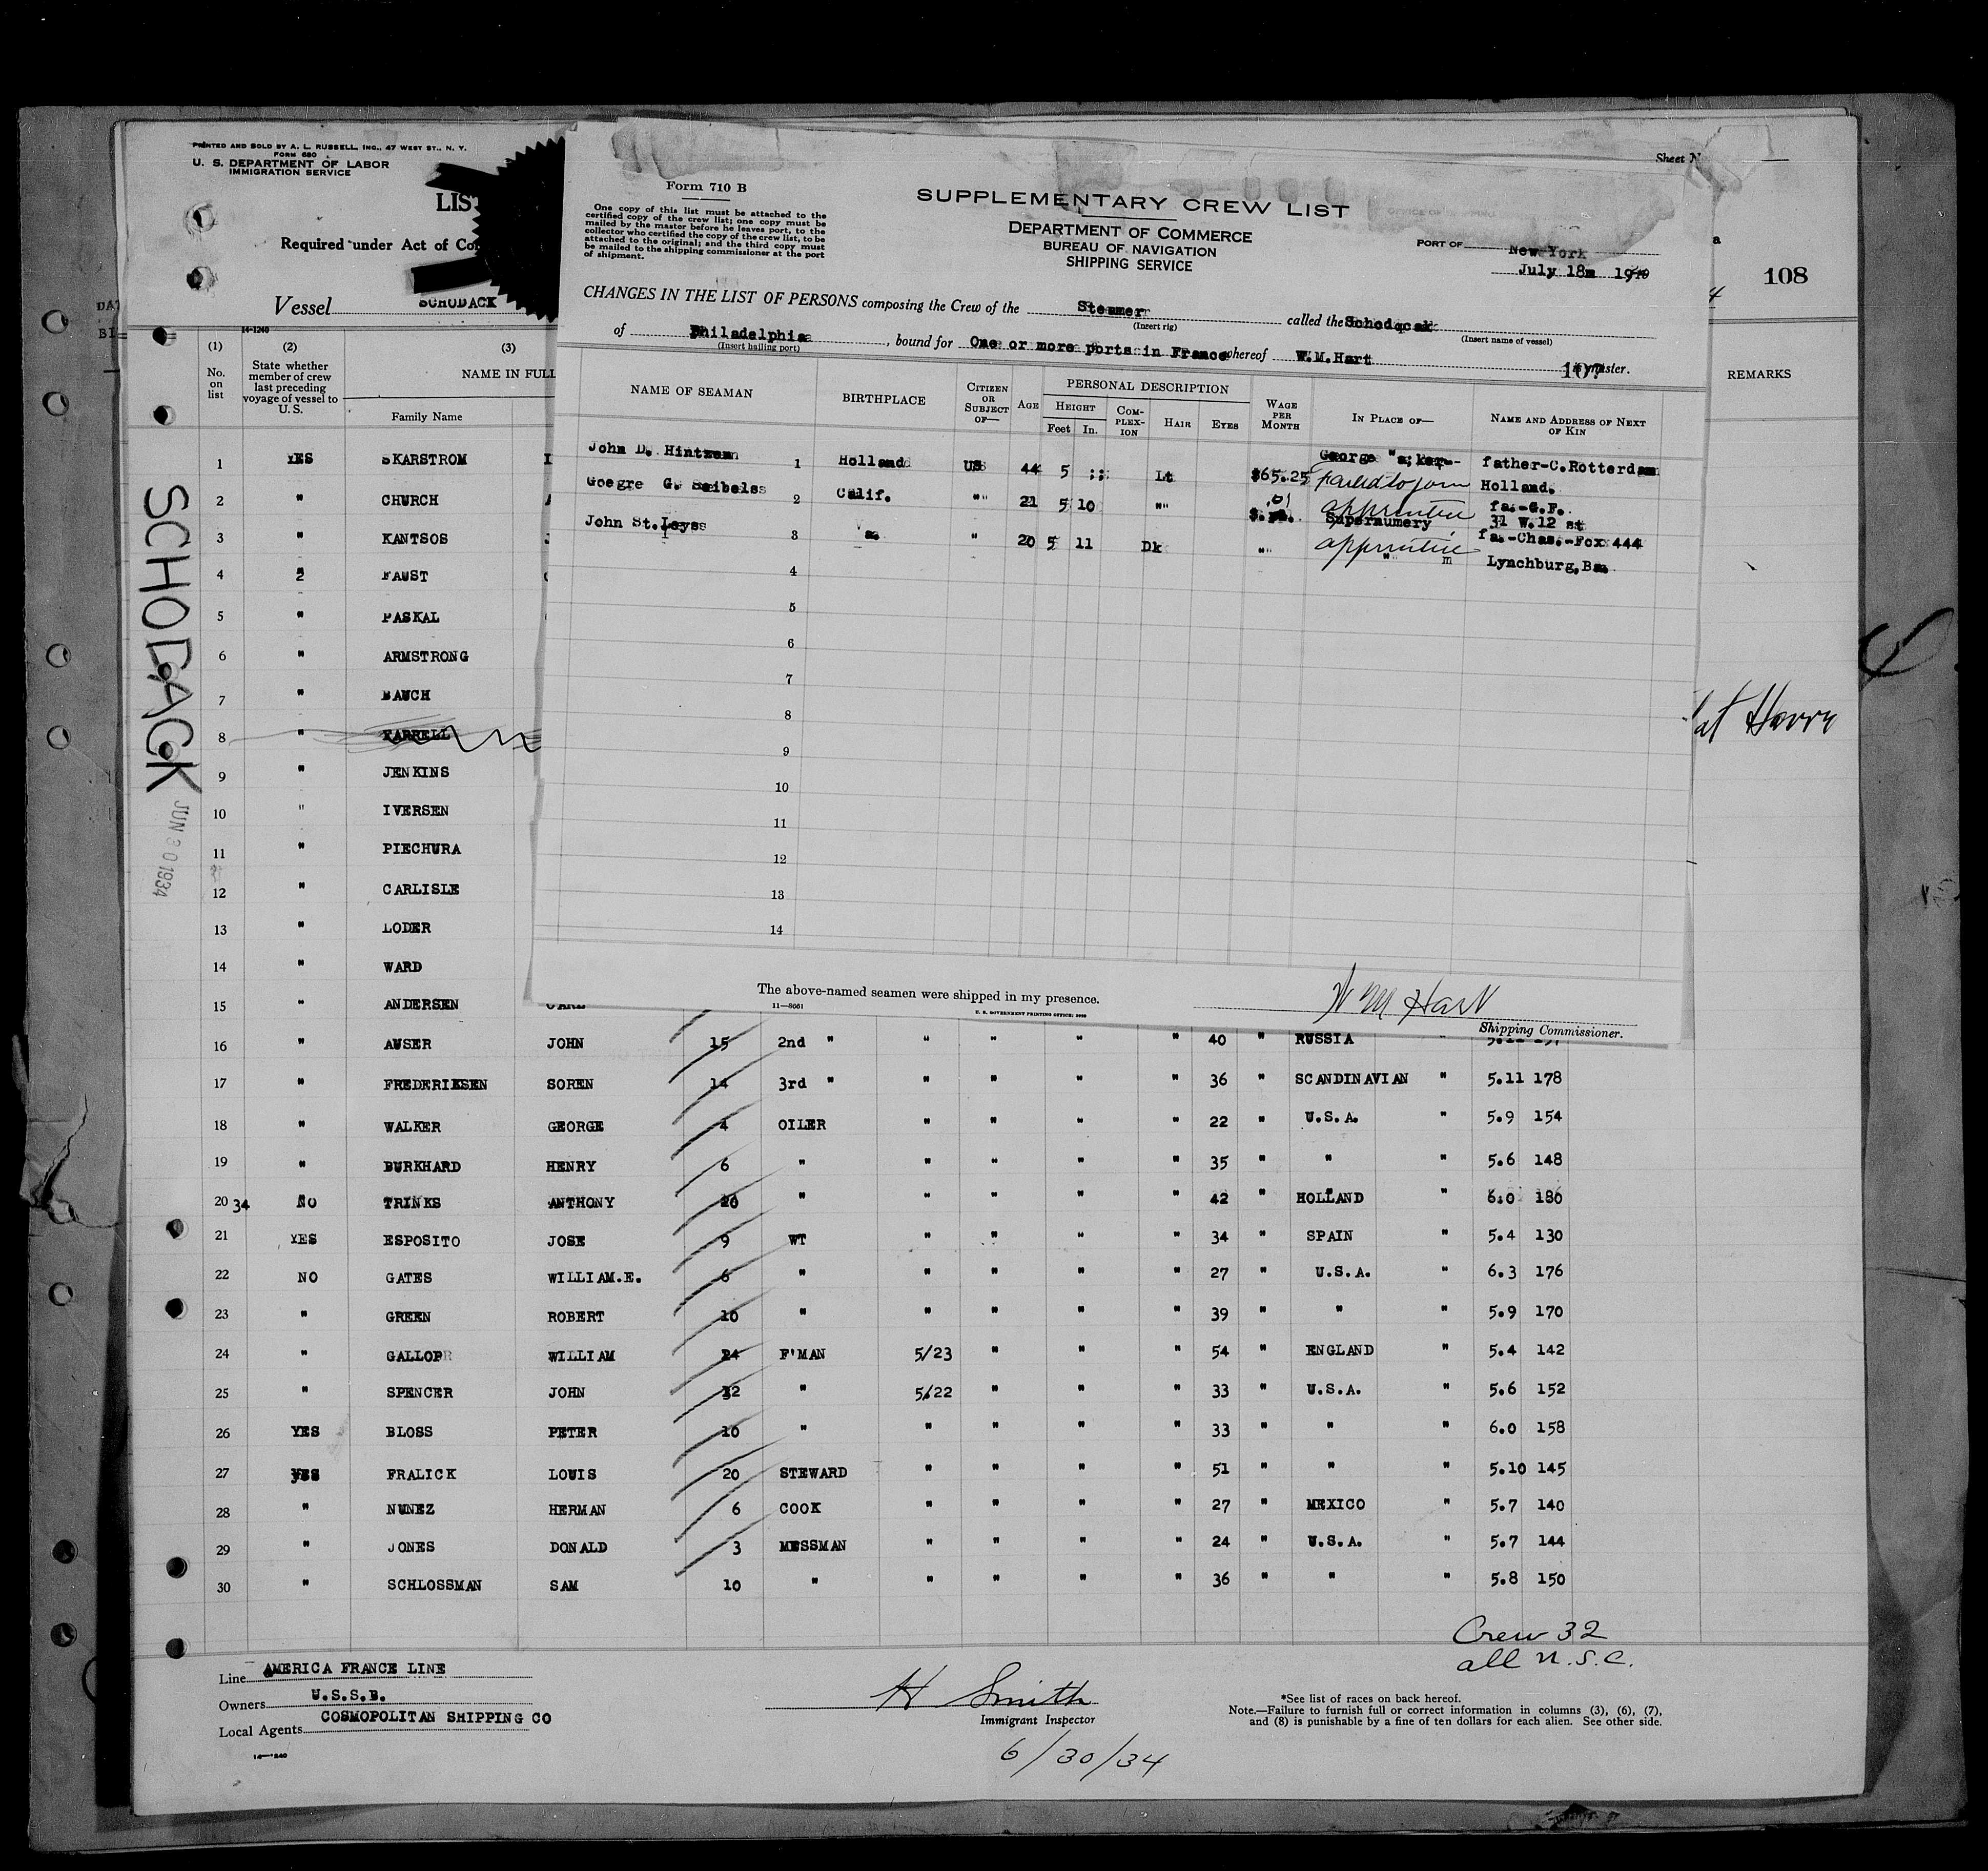 PRINTED AND SOLD BY A. L. RUSSELL, INC., 47 WEST ST., N. Y.
FORM 680
U. S. DEPARTMENT OF LABOR
IMMIGRATION SERVICE
LIST
Required under Act of Co
Vessel SCHODACK
Sheet N
108
Form 710 B
One copy of this list must be attached to the
certified copy of the crew list; one copy must be
mailed by the master before he leaves port, to the
collector who certified the copy of the crew list, to be
attached to the original; and the third copy must
be mailed to the shipping commissioner at the port
of shipment.
SUPPLEMENTARY CREW LIST
DEPARTMENT OF COMMERCE
BUREAU OF NAVIGATION
SHIPPING SERVICE
PORT OF New York
July 18
CHANGES IN THE LIST OF PERSONS composing the Crew of the Steamer called the
(Insert rig) (Insert name of vessel)
of Philadelphia, bound for One or more ports in France whereof W.M.Hart is master.
(Insert hailing port)
107
NAME OF SEAMAN BIRTHPLACE CITIZEN OR SUBJECT OF— AGE PERSONAL DESCRIPTION WAGE PER MONTH IN PLACE OF— NAME AND ADDRESS OF NEXT OF KIN
HEIGHT COM-PLEX-ION HAIR EYES
Feet In.
John D. 1 Holland US 44 5 :: Lt $65.25 George failed to join father-C.Rotterdam Holland.
Goegre G. Seibels 2 Calif. " 21 5 10 " .01 apprentice Supernumery fa.-G.F. 31 W.12 st
John St. 3 " 20 5 11 Dk " apprentice " fa.-Chas.-Fox 444 Lynchburg,
4
5
6
7
8
9
10
11
12
13
14
The above-named seamen were shipped in my presence.
11—8661
U. S. GOVERNMENT PRINTING OFFICE:
W M Hart
Shipping Commissioner.
14-1240
(1) (2) (3)
No. on list
State whether member of crew last preceding voyage of vessel to U. S.
NAME IN FULL
Family Name
REMARKS
SCHODACK
JUN 30 1934
at Havre
1 YES SKARSTROM
2 " CHURCH
3 " KANTSOS
4 " FAUST
5 " PASKAL
6 " ARMSTRONG
7 " BAUCH
8 " FARRELL
9 " JENKINS
10 " IVERSEN
11 " PIECHURA
12 " CARLISLE
13 " LODER
14 " WARD
15 " ANDERSEN CARL
16 " AUSER JOHN 15 2nd " " " " " 40 " RUSSIA "
17 " FREDERIKSEN SOREN 14 3rd " " " " " 36 " SCANDINAVIAN " 5.11 178
18 " WALKER GEORGE 4 OILER " " " " 22 " U.S.A. " 5.9 154
19 " BURKHARD HENRY 6 " " " " " 35 " " " 5.6 148
20 34 NO TRINKS ANTHONY 20 " " " " " 42 " HOLLAND " 6.0 180
21 YES ESPOSITO JOSE 9 WT " " " " 34 " SPAIN " 5.4 130
22 NO GATES WILLIAM.E. 6 " " " " " 27 " U.S.A. " 6.3 176
23 " GREEN ROBERT 10 " " " " " 39 " " " 5.9 170
24 " GALLOP WILLIAM 24 F'MAN 5/23 " " " 54 " ENGLAND " 5.4 142
25 " SPENCER JOHN 12 " 5/22 " " " 33 " U.S.A. " 5.6 152
26 YES BLOSS PETER 10 " " " " " 33 " " " 6.0 158
27 YES FRALICK LOUIS 20 STEWARD " " " " 51 " " " 5.10 145
28 " NUNEZ HERMAN 6 COOK " " " " 27 " MEXICO " 5.7 140
29 " JONES DONALD 3 MESSMAN " " " " 24 " U.S.A. " 5.7 144
30 " SCHLOSSMAN SAM 10 " " " " " 36 " " " 5.8 150
Crew 32
all U.S.C.
Line AMERICA FRANCE LINE
Owners U.S.S.B.
Local Agents COSMOPOLITAN SHIPPING CO
14—1240
H Smith
Immigrant Inspector
6/30/34
*See list of races on back hereof.
Note.—Failure to furnish full or correct information in columns (3), (6), (7),
and (8) is punishable by a fine of ten dollars for each alien. See other side.